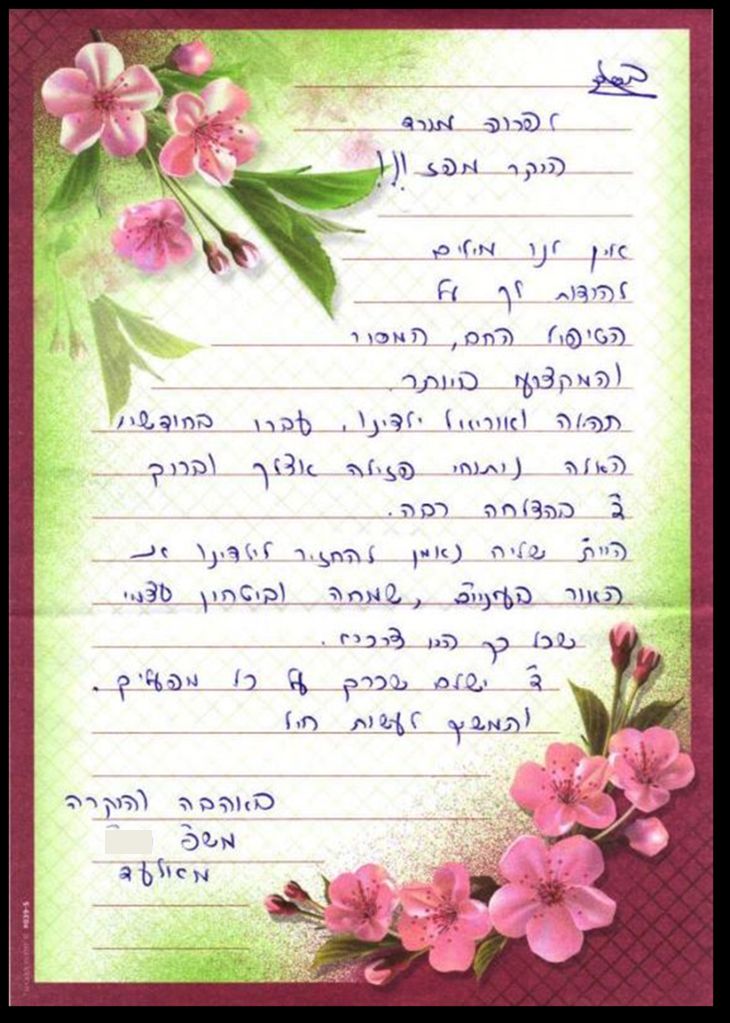 לפרופ' מורד
היקר מפז!!!
אין לנו מילים
להודות לך על
הטיפול החם, המסור
והמקצועי ביותר.
תהלה ואוריאל ילדינו, עברו בחודשיים
האלה ניתוחי פזילה אצלך וברוך
ה' בהצלחה רבה.
היית שליח נאמן להחזיר לילדינו את
האור בעיניים, שמחה וביטחון עצמי
שכל כך היו צריכים.
ה' ישלם שכרך על כל מפעליך.
והמשך לעשות חיל
באהבה והוקרה
משפ'
מאלעד